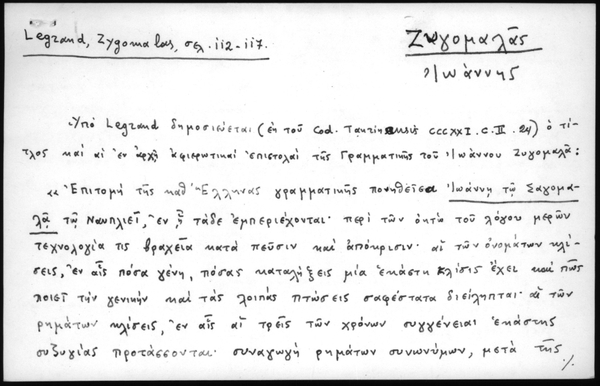 Legrand, Zygomalas, σελ. 112-117.
Ζυγομαλᾶς
Ἰωάννης
Ὑπὸ Legrand δημοσιεύεται (ἐκ τοῦ Cod. Taurinensis CCCXXI. C. II. 24) ὁ τί-
τλος καὶ αἱ ἐν ἀρχῇ ἀφιερωτικαὶ ἐπιστολαὶ τῆς Γραμματικῆς τοῦ Ἰωάννου Ζυγομαλᾶ:
«Ἐπιτομὴ τῆς καθ' Ἕλληνας γραμματικῆς πονηθεῖσα Ἰωάννῃ τῷ Ζαγομα-
λᾷ τῷ Ναυπλιεῖ, ἐν ᾗ τάδε ἐμπεριέχονται· περὶ τῶν ὀκτὼ τοῦ λόγου μερῶν
τεχνολογία τις βραχεῖα κατὰ πεῦσιν καὶ ἀπόκρισιν· αἱ τῶν ὀνομάτων κλί-
σεις, ἐν αἷς πόσα γένη, πόσας καταλήξεις μία ἑκάστη κλίσις ἔχει καὶ πῶς
ποιεῖ τὴν γενικὴν καὶ τὰς λοιπὰς πτώσεις σαφέστατα διείληπται· αἱ τῶν
ρημάτων κλίσεις, ἐν αἷς αἱ τρεῖς τῶν χρόνων συγγένειαι ἑκάστης
συζυγίας προτάσσονται· συναγωγὴ ρημάτων συνωνύμων, μετὰ τῆς
./.